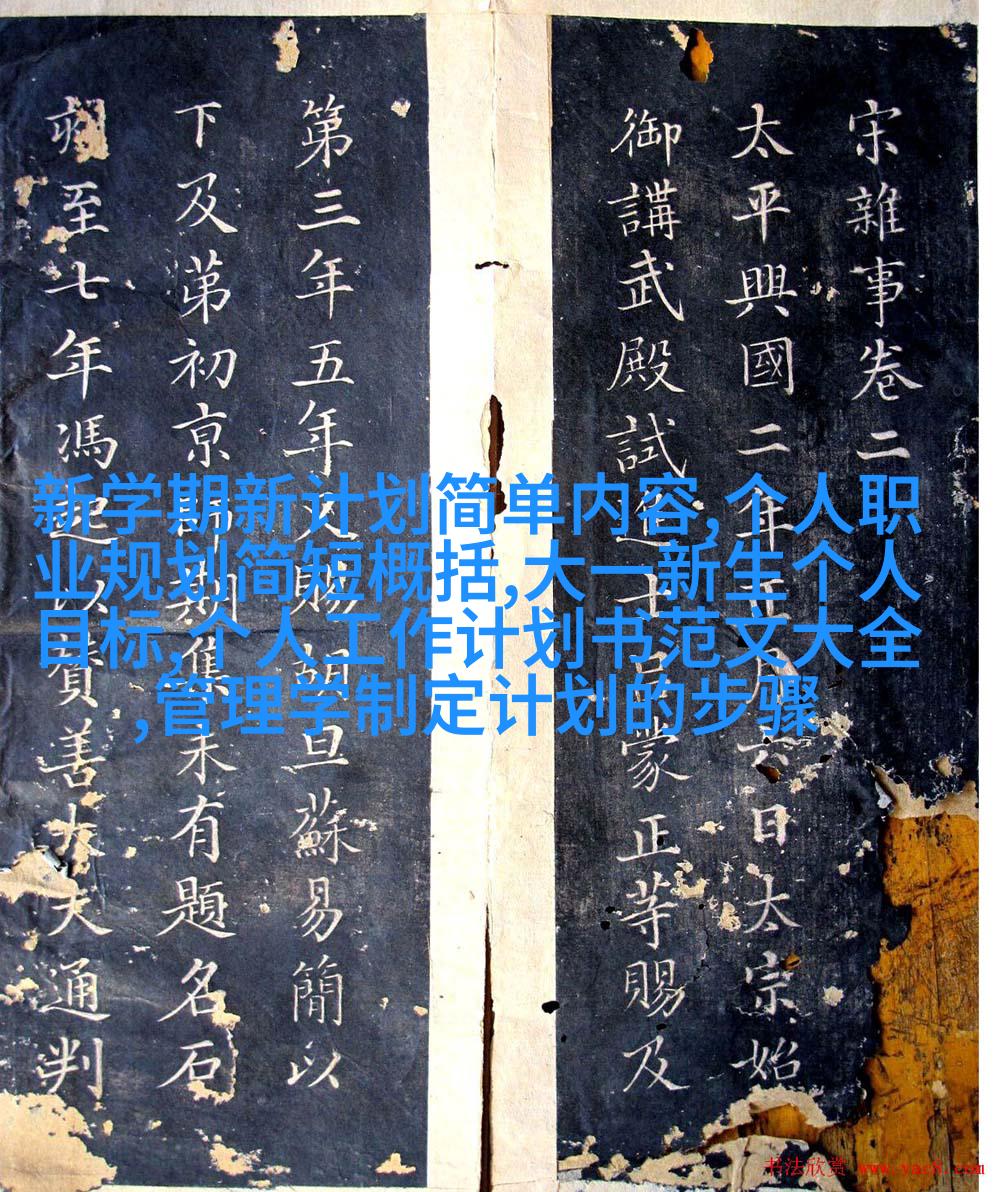 宋雜事卷二
太平興國二年正月六日太宗始
御講武殿試進士呂蒙正等賜及
第三年五年又賜胡旦蘇易簡以
下及第初京期集未有題名石
至七年馮起以贊善大夫通判
新学期新计划简单内容,个人职
业规划简短概括,大一新生个人
目标,个人工作计划书范文大全
,管理学制定计划的步骤
书法欣赏 www.yac8.com